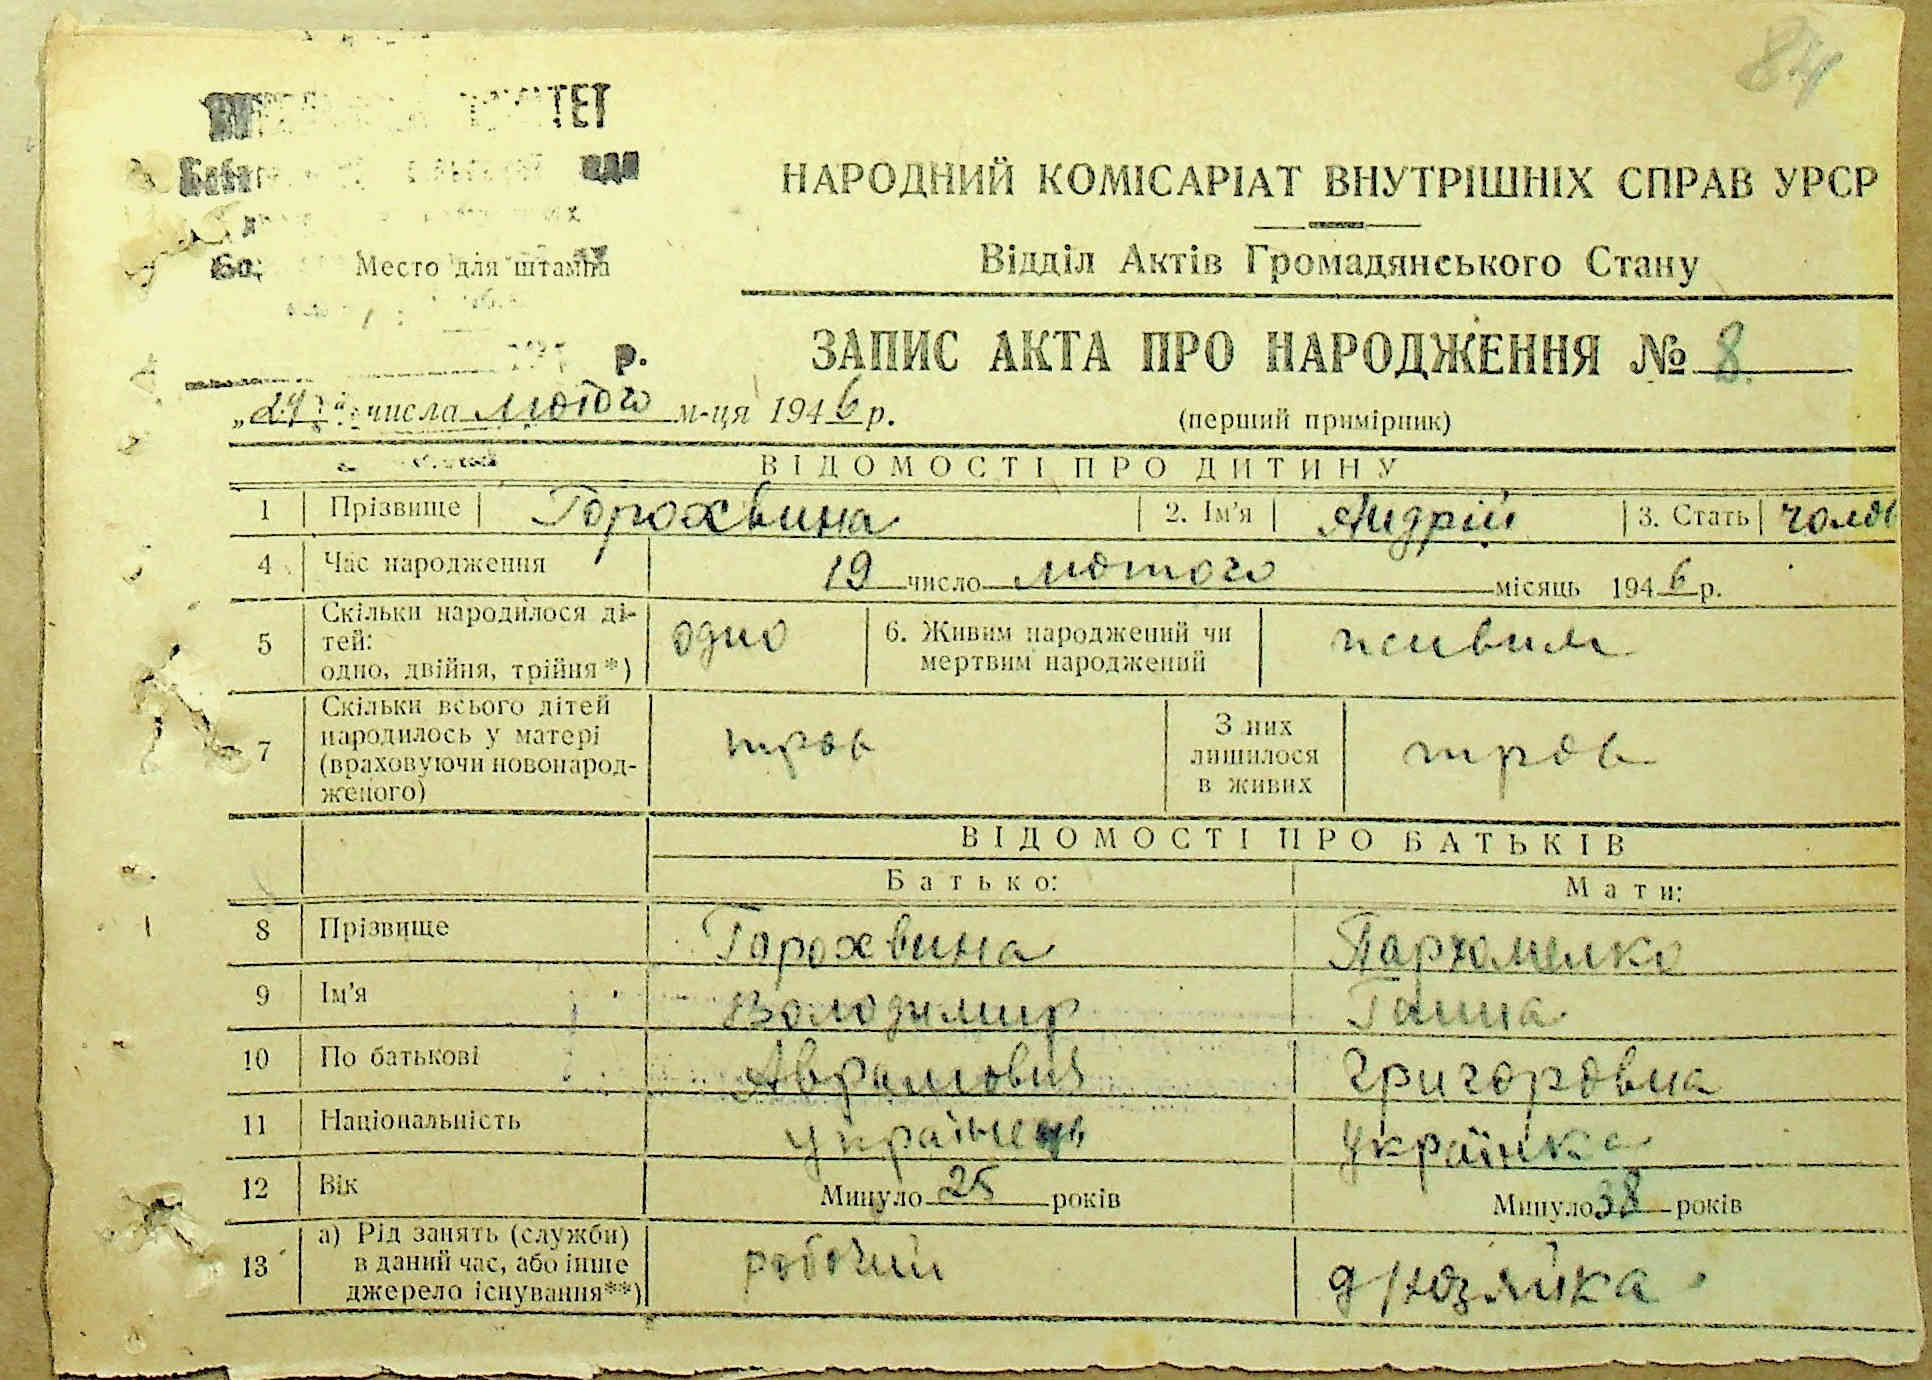 84
НАРОДНИЙ КОМІСАРІАТ ВНУТРІШНІХ СПРАВ УРСР
Відділ Актів Громадянського Стану
Место для штампа
р.
ЗАПИС АКТА ПРО НАРОДЖЕННЯ № 8
„ числа лютого м-ця 1946 р.
(перший примірник)
ВІДОМОСТІ ПРО ДИТИНУ
1 Прізвище Горохвина 2. Ім'я Андрій 3. Стать чолов
4 Час народження 19 число лютого місяць 1946 р.
5 Скільки народилося ді-
тей:
одно, двійня, трійня*) одно 6. Живим народжений чи
мертвим народжений живим
7 Скільки всього дітей
народилось у матері
(враховуючи новонарод-
женого) троє З них
лишилося
в живих троє
ВІДОМОСТІ ПРО БАТЬКІВ
Батько: Мати:
8 Прізвище Горохвина Пархоменко
9 Ім'я Володимир Ганна
10 По батькові Аврамович Григоровна
11 Національність українець українка
12 Вік Минуло 25 років Минуло 38 років
13 а) Рід занять (служби)
в даний час, або інше
джерело існування**) робочий д/хозяйка